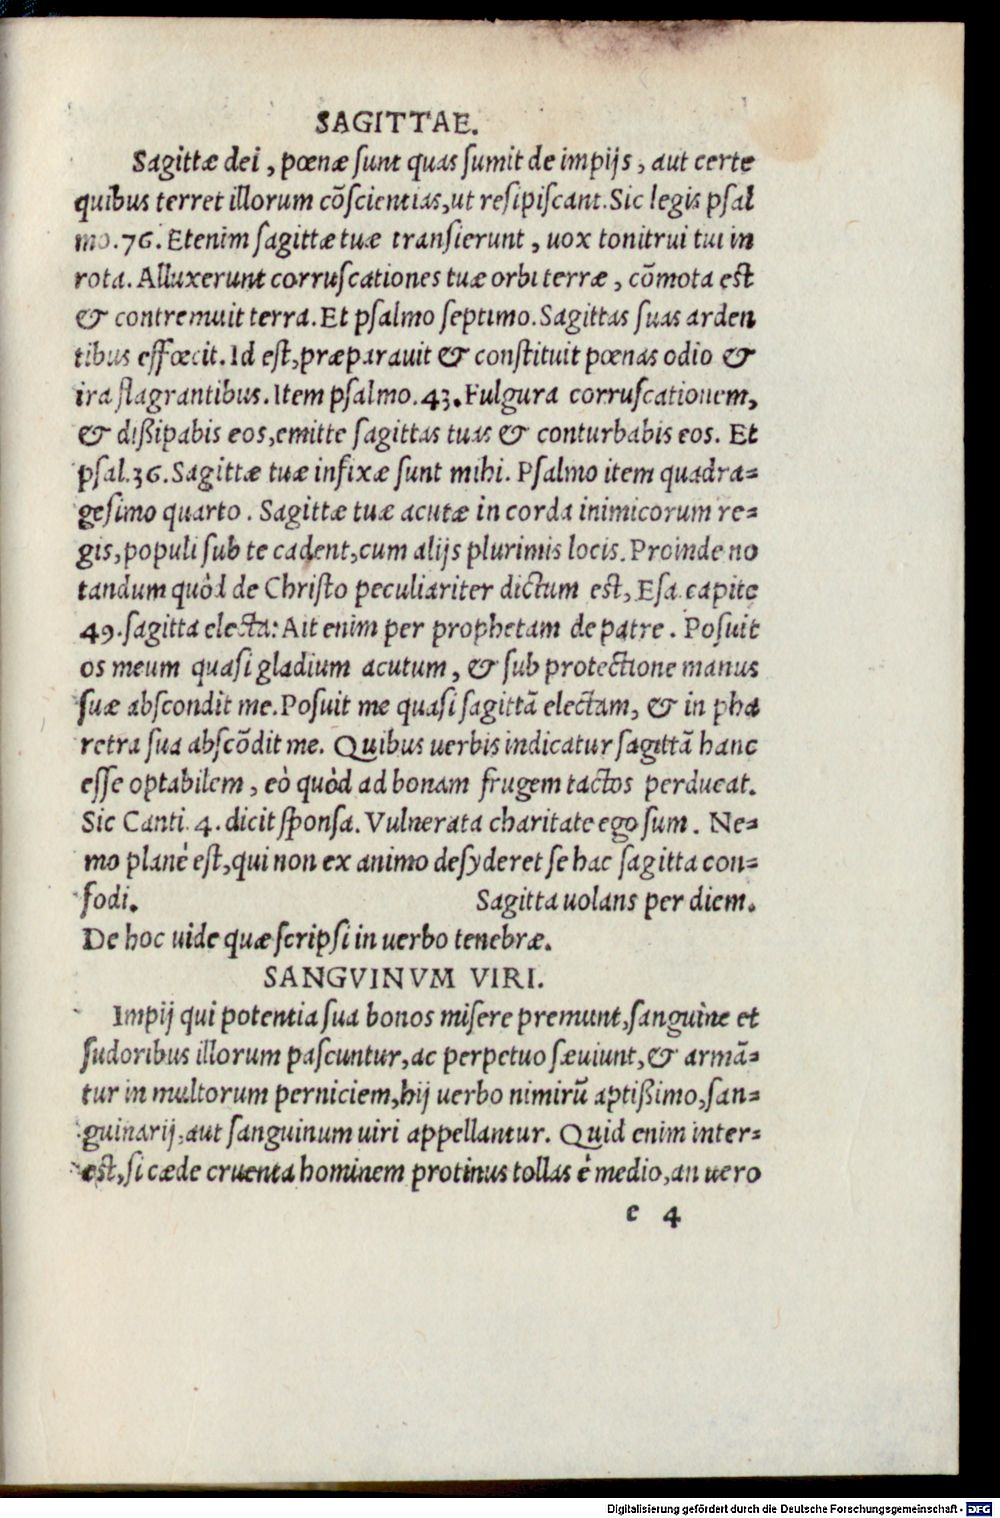 SAGITTAE.
Sagittæ dei, pœnæ sunt quas sumit de impijs, aut certe
quibus terret illorum cõscientias, ut resipiscant. Sic legis psal
mo. 76. Etenim sagittæ tuæ transierunt, uox tonitrui tui in
rota. Alluxerunt corruscationes tuæ orbi terræ, cõmota est
& contremuit terra. Et psalmo septimo. Sagittas suas arden
tibus effœcit. Id est, præparauit & constituit pœnas odio &
ira flagrantibus. Item psalmo. 43. Fulgura corruscationem,
& dißipabis eos, emitte sagittas tuas & conturbabis eos. Et
psal. 36. Sagittæ tuæ infixæ sunt mihi. Psalmo item quadra=
gesimo quarto. Sagittæ tuæ acutæ in corda inimicorum re=
gis, populi sub te cadent, cum alijs plurimis locis. Proinde no
tandum quòd de Christo peculiariter dictum est, Esa. capite
49. sagitta electa: Ait enim per prophetam de patre. Posuit
os meum quasi gladium acutum, & sub protectione manus
suæ abscondit me. Posuit me quasi sagittã electam, & in pha
retra sua abscõdit me. Quibus uerbis indicatur sagittã hanc
esse optabilem, eò quòd ad bonam frugem tactos perducat.
Sic Canti. 4. dicit sponsa. Vulnerata charitate ego sum. Ne=
mo planè est, qui non ex animo desyderet se hac sagitta con=
fodi. Sagitta uolans per diem.
De hoc uide quæ scripsi in uerbo tenebræ.
SANGVINVM VIRI.
Impij qui potentia sua bonos misere premunt, sanguine et
sudoribus illorum pascuntur, ac perpetuo sæuiunt, & armã=
tur in multorum perniciem, hij uerbo nimirũ aptißimo, san=
guinarij, aut sanguinum uiri appellantur. Quid enim inter=
est, si cæde cruenta hominem protinus tollas è medio, an uero
e 4
Digitalisierung gefördert durch die Deutsche Forschungsgemeinschaft - DFG